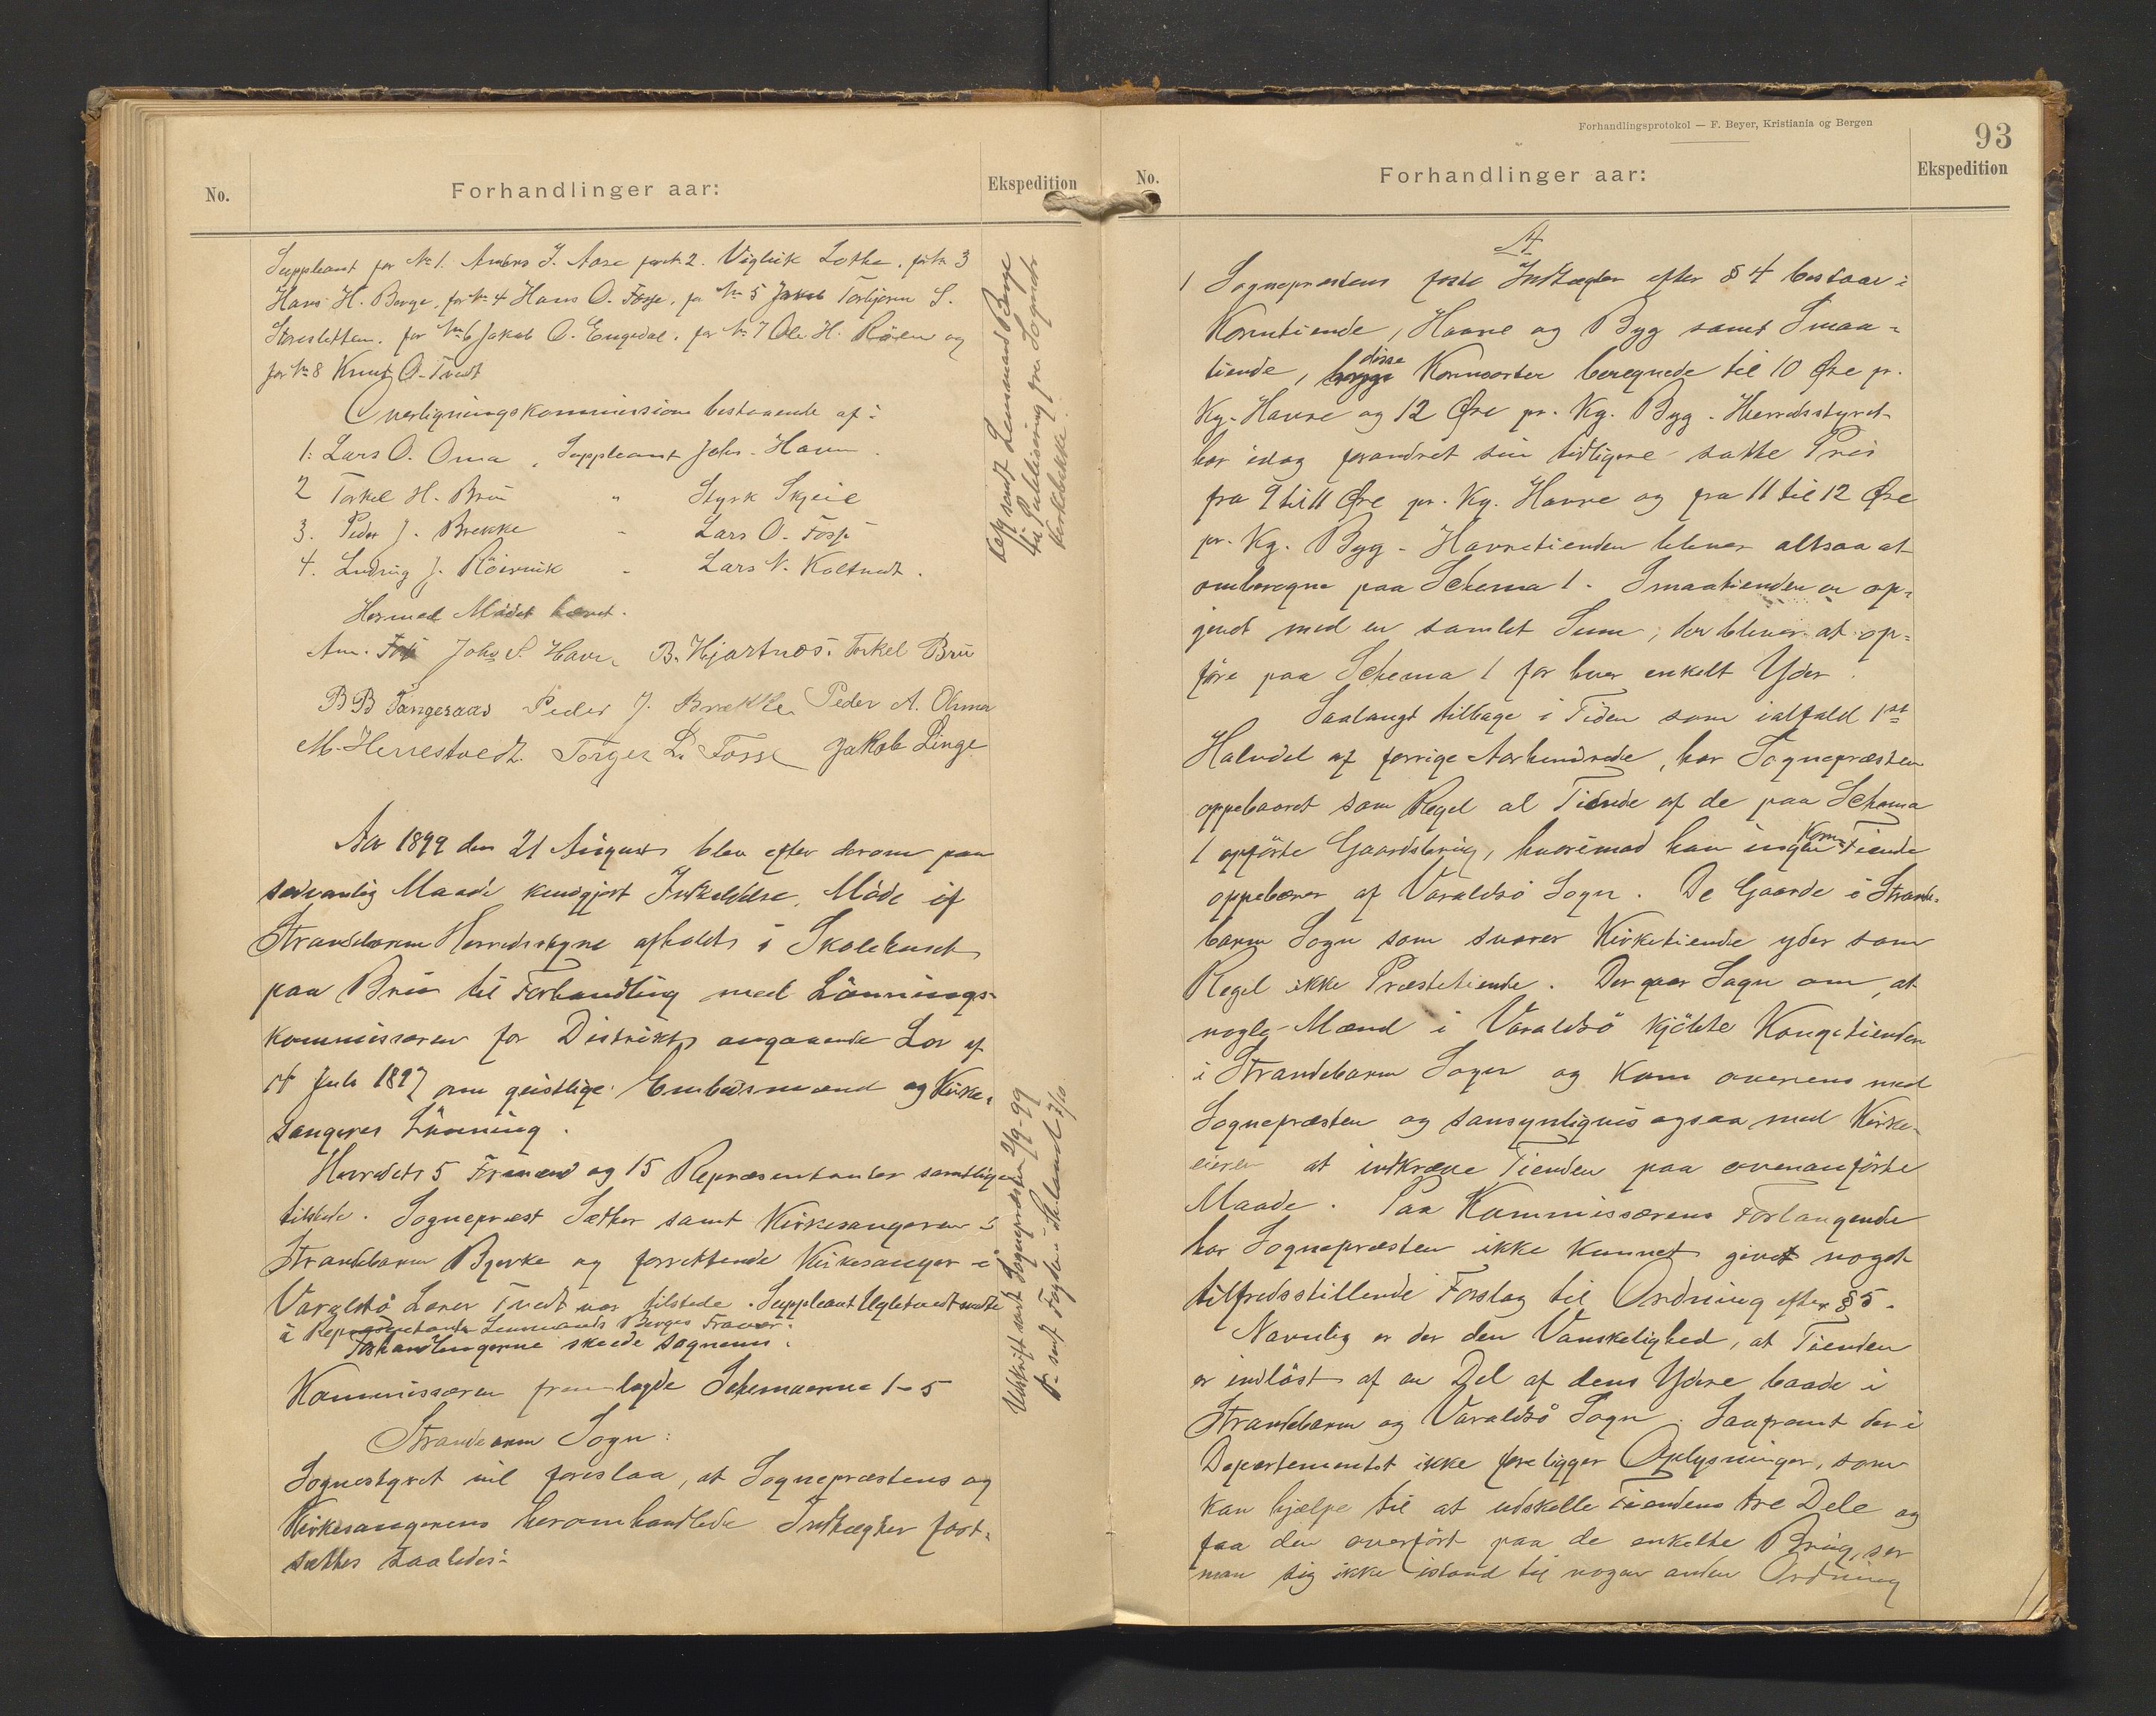 No.
Forhandlinger aar:
Ekspedition
Suppleant for No 1. Anders J. Aase for No 2. Viglik Lothe. for No 3
Hans H. Berge, for No 4 Hans O. Fosse, for No 5 Torbjørn S.
for No 6 Jakob O. Engedal. for No 7 Ole H. Röen og
for No 8 Knut O. Tvedt
Overligningskommission bestaaende af:
1. Lars O. Oma, Suppleant Johs. Havn.
2 Torkel H. Brü " Styrk Skjeie
3. Peder J. Brekke - Lars O. Fosse
4. Ludvig J. Röirvik - Lars N. Koltvedt.
Hermed Mödet hævet.
Am. Johs S. Havn B. Hjartnes. Torkel Brü
B B Tangeraas Peder J. Brekke Peder A. Omma
M. Herrestvedt. Torger L. Fosse Jakob Linge
Kopi sendt Lensmand Berge
til Publisering ved Sognenes
Kirkebakke
Aar 1899 den 21 August blev efter derom paa
sedvanlig Maade kundgjort Indkaldelse, Möde af
Strandebarm Herredsstyre afholdt i Skolehuset
paa Brü til Forhandling med Lönnings-
kommissæren for Distriktet angaaende Lov af
14 Juli 1897 om geistlige Embedsmænd og Kirke-
sangeres Lönning.
Herredets 5 Formænd og 15 Repræsentanter samtlige
tilstede. Sogneprest Sæther samt Kirkesangeren i
Strandebarm Bjerke og forrettende Kirkesanger i
Varaldsö Lærer Tvedt var tilstede. Suppleant Ugletvedt mödte
i Repræsentant Lensmands Berges Fravær.
Forhandlingerne skeede sognevis.
Kommissæren fremlagde Schemaerne 1-5
Strandebarm Sogn:
Sognestyret vil foreslaa, at Sogneprestens og
Kirkesangerens heromhandlede Indtægter fast-
sættes saaledes:
Udskrift sendt Sognepresten 2/9-99
D. sendt Fogden i 7/10
Forhandlingsprotokol — F. Beyer, Kristiania og Bergen
93
No.
Forhandlinger aar:
Ekspedition
A
1 Sogneprestens faste Indtægter efter § 4 bestaar i
Korntiende, Havre og Byg samt Smaa-
tiende, disse Kornsorter beregnede til 10 Øre pr.
Kg. Havre og 12 Øre pr. Kg. Byg. Herredsstyret
har idag forandret sin tidligere satte Pris
fra 9 til 11 Øre pr. Kg. Havre og fra 11 til 12 Øre
pr. Kg. Byg. Havretienden bliver altsaa at
omberegne paa Schema 1. Smaatienden er op-
givet med en samlet Sum, der bliver at op-
före paa Schema 1 for hver enkelt Yder.
Saalangt tilbage i Tiden som ialfald 1ste
Halvdel af forrige Aarhundrede, har Sognepræsten
oppebaaret som Regel al Tiende af de paa Schema
1 opförte Gaardsbrüg, hvorimod han ingen Korn-Tiende
oppebærer af Varaldsö Sogn. De Gaarde i Strande-
barm Sogn som svarer Kirketiende yder som
Regel ikke Præstetiende. Der gaar Sagn om, at
nogle Mænd i Varaldsö kjöbte Kongetienden
i Strandebarm Sogn og kom overens med
Sognepræsten og sansynligvis ogsaa med Kirke-
eieren at indkræve Tienden paa ovenanförte
Maade. Paa Kommissærens Forlangende
har Sognepræsten ikke kunnet givet noget
tilfredsstillende Forslag til Ordning efter § 5.
Navnlig er der den Vanskelighed, at Tienden
er indlöst af en Del af dens Ydere baade i
Strandebarm og Varaldsö Sogn. Saafremt der i
Departementet ikke foreligger Oplysninger, som
kan hjælpe til at udskille Tiendens tre Dele og
faa den overfört paa de enkelte Brüg, ser
man sig ikke istand til nogen anden Ordning